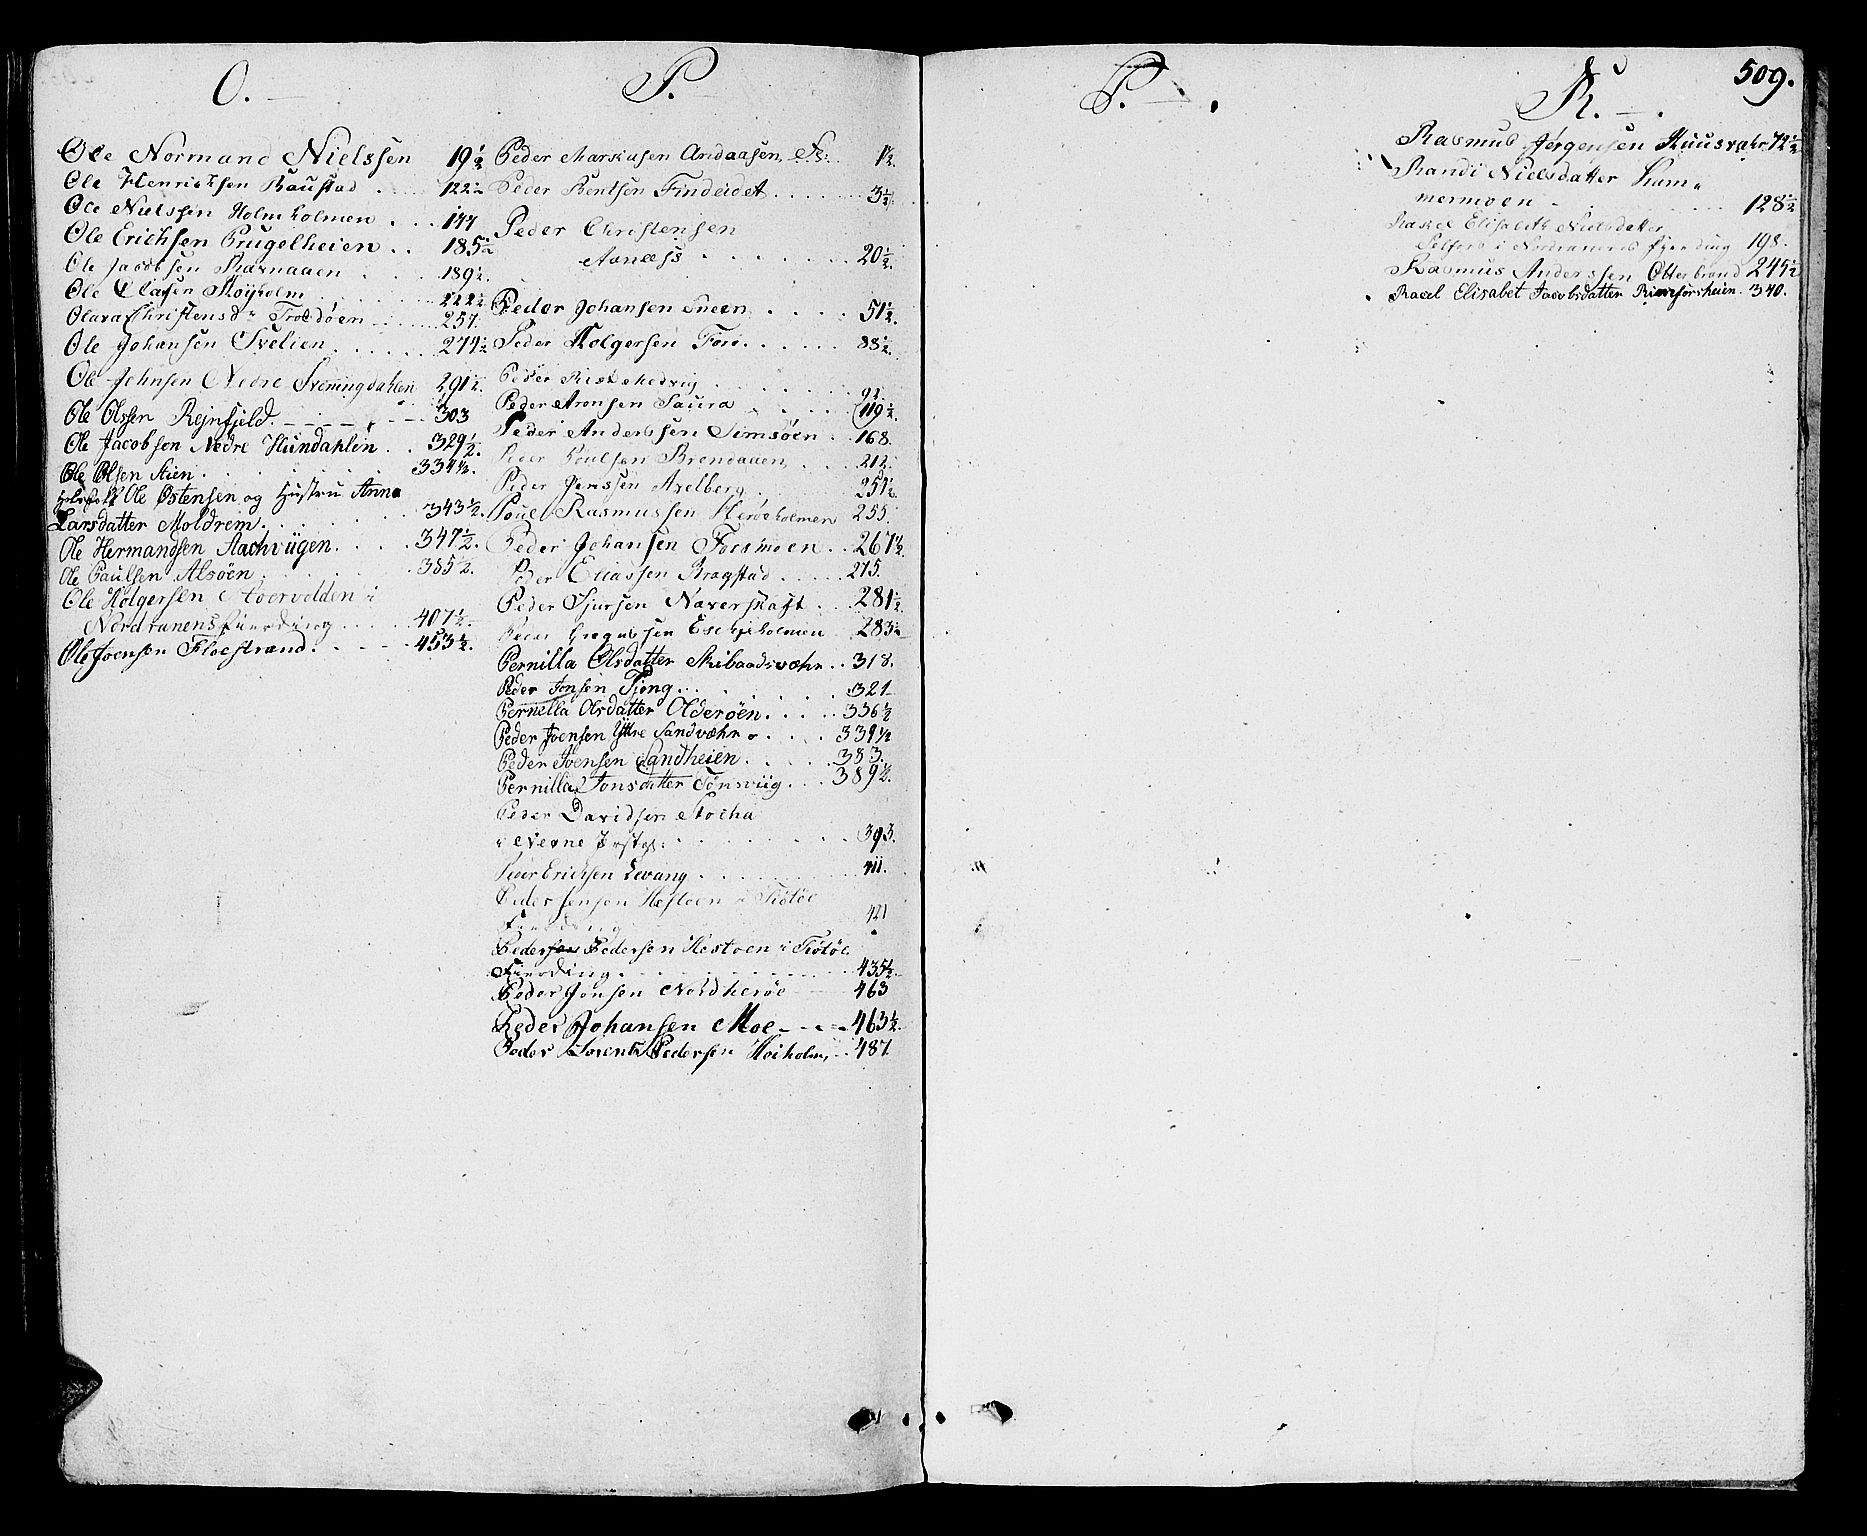 O.
Ole Normand Nielssen 19½
Ole Henrichsen Baustad . 122½
Ole Nielssen Holmholmen . . . 177
Ole Erichsen Brugelheien . . 185½
Ole Jacobsen Ravnaaen . . . 189½.
Ole Olasen Høyholm . . . 222½
Olava Christensdr Troldøen . . . 257.
Ole Johansen Svelien . . . . . 274½
Ole Johnsen Nedre Sveningdahlen 291½.
Ole Olssen Rejnfjeld. - - - - 303
Ole Jacobsen Nedre Hundahlen . . 329½.
Ole Olsen Stien . . . . . 334½.
Ole Østensen og Hustru Anna
Larsdatter Moldrem . . . . . 343½.
Ole Hermandsen Aachviigen . . . . 347½.
Ole Paulsen Alsøen . . . . . 385½.
Ole Holgersen i
Nordranens Fierding . . . . 407½.
Ole Joensen Floestrand . - - - - 453½.
P.
Peder Marsiusen Andaasen, 1½.
Peder Bentsen Findeidet . . . . . . 3½
Peder Christensen
Aanæss . . . . . . . 20½.
Peder Johansen Eneen . . . . 51½.
Peder Holgersen Forö . . . . . . 88½.
Peder Hedvig . . . . . 92
Peder Aronsen Saura . . . . . 119½.
Peder Anderssen Simsøen . . 168.
Peder Poulsen Brendaaen . . . 212.
Peder Jenssen Axelberg . . . 251½.
Poul Rasmussen Herøeholmen 255.
Peder Johansen Forsmoen . . 267½.
Peder Eliassen Bragstad . . . . . 275.
Peder Sjursen Naverskaft . . . 281½.
Peder Gregussen 283½
Pernilla Olsdatter Skibaadsvæhr . . 318.
Peder Jonsen Tjøng . . . . . . . 321
Pernella Olsdatter Olderøen . . . . . 336½
Peder Joensen Yttre Sandvæhr . . . . 339½
Peder Joensen Sandheien . . . . . 383.
Pernilla Jonsdatter Tønsviig . . . 389½.
Peder Davidsen Stocka
i Nerne Præstgl: . . . . . . . 393.
Peder Erichsen Levang . . . . . . 411.
Peder Jensen Hestøen i Tiøtøe
Fierding . . . . . 421
Peder Pedersen Hestøen i Tiøtøe
Fierding . . . . . . . . . . . 435½.
Peder Jonsen Nordherøe 463
Peder Johansen Moe - - - - 463½.
Peder Lorents Pedersen Høiholm, . . 487.
P.
R.
509.
Rasmus Jørgensen Huusvæhr 72½
Randi Nielsdatter Kum-
mermoen - . . . . . . . 128½
Rachel Elisabeth Nielsdatter
Selfors i Nordranens Fjerding 198.
Rasmus Anderssen Otterbrand 245½
Racel Elisabet Jacobsdatter Rinneforsheien . 340.